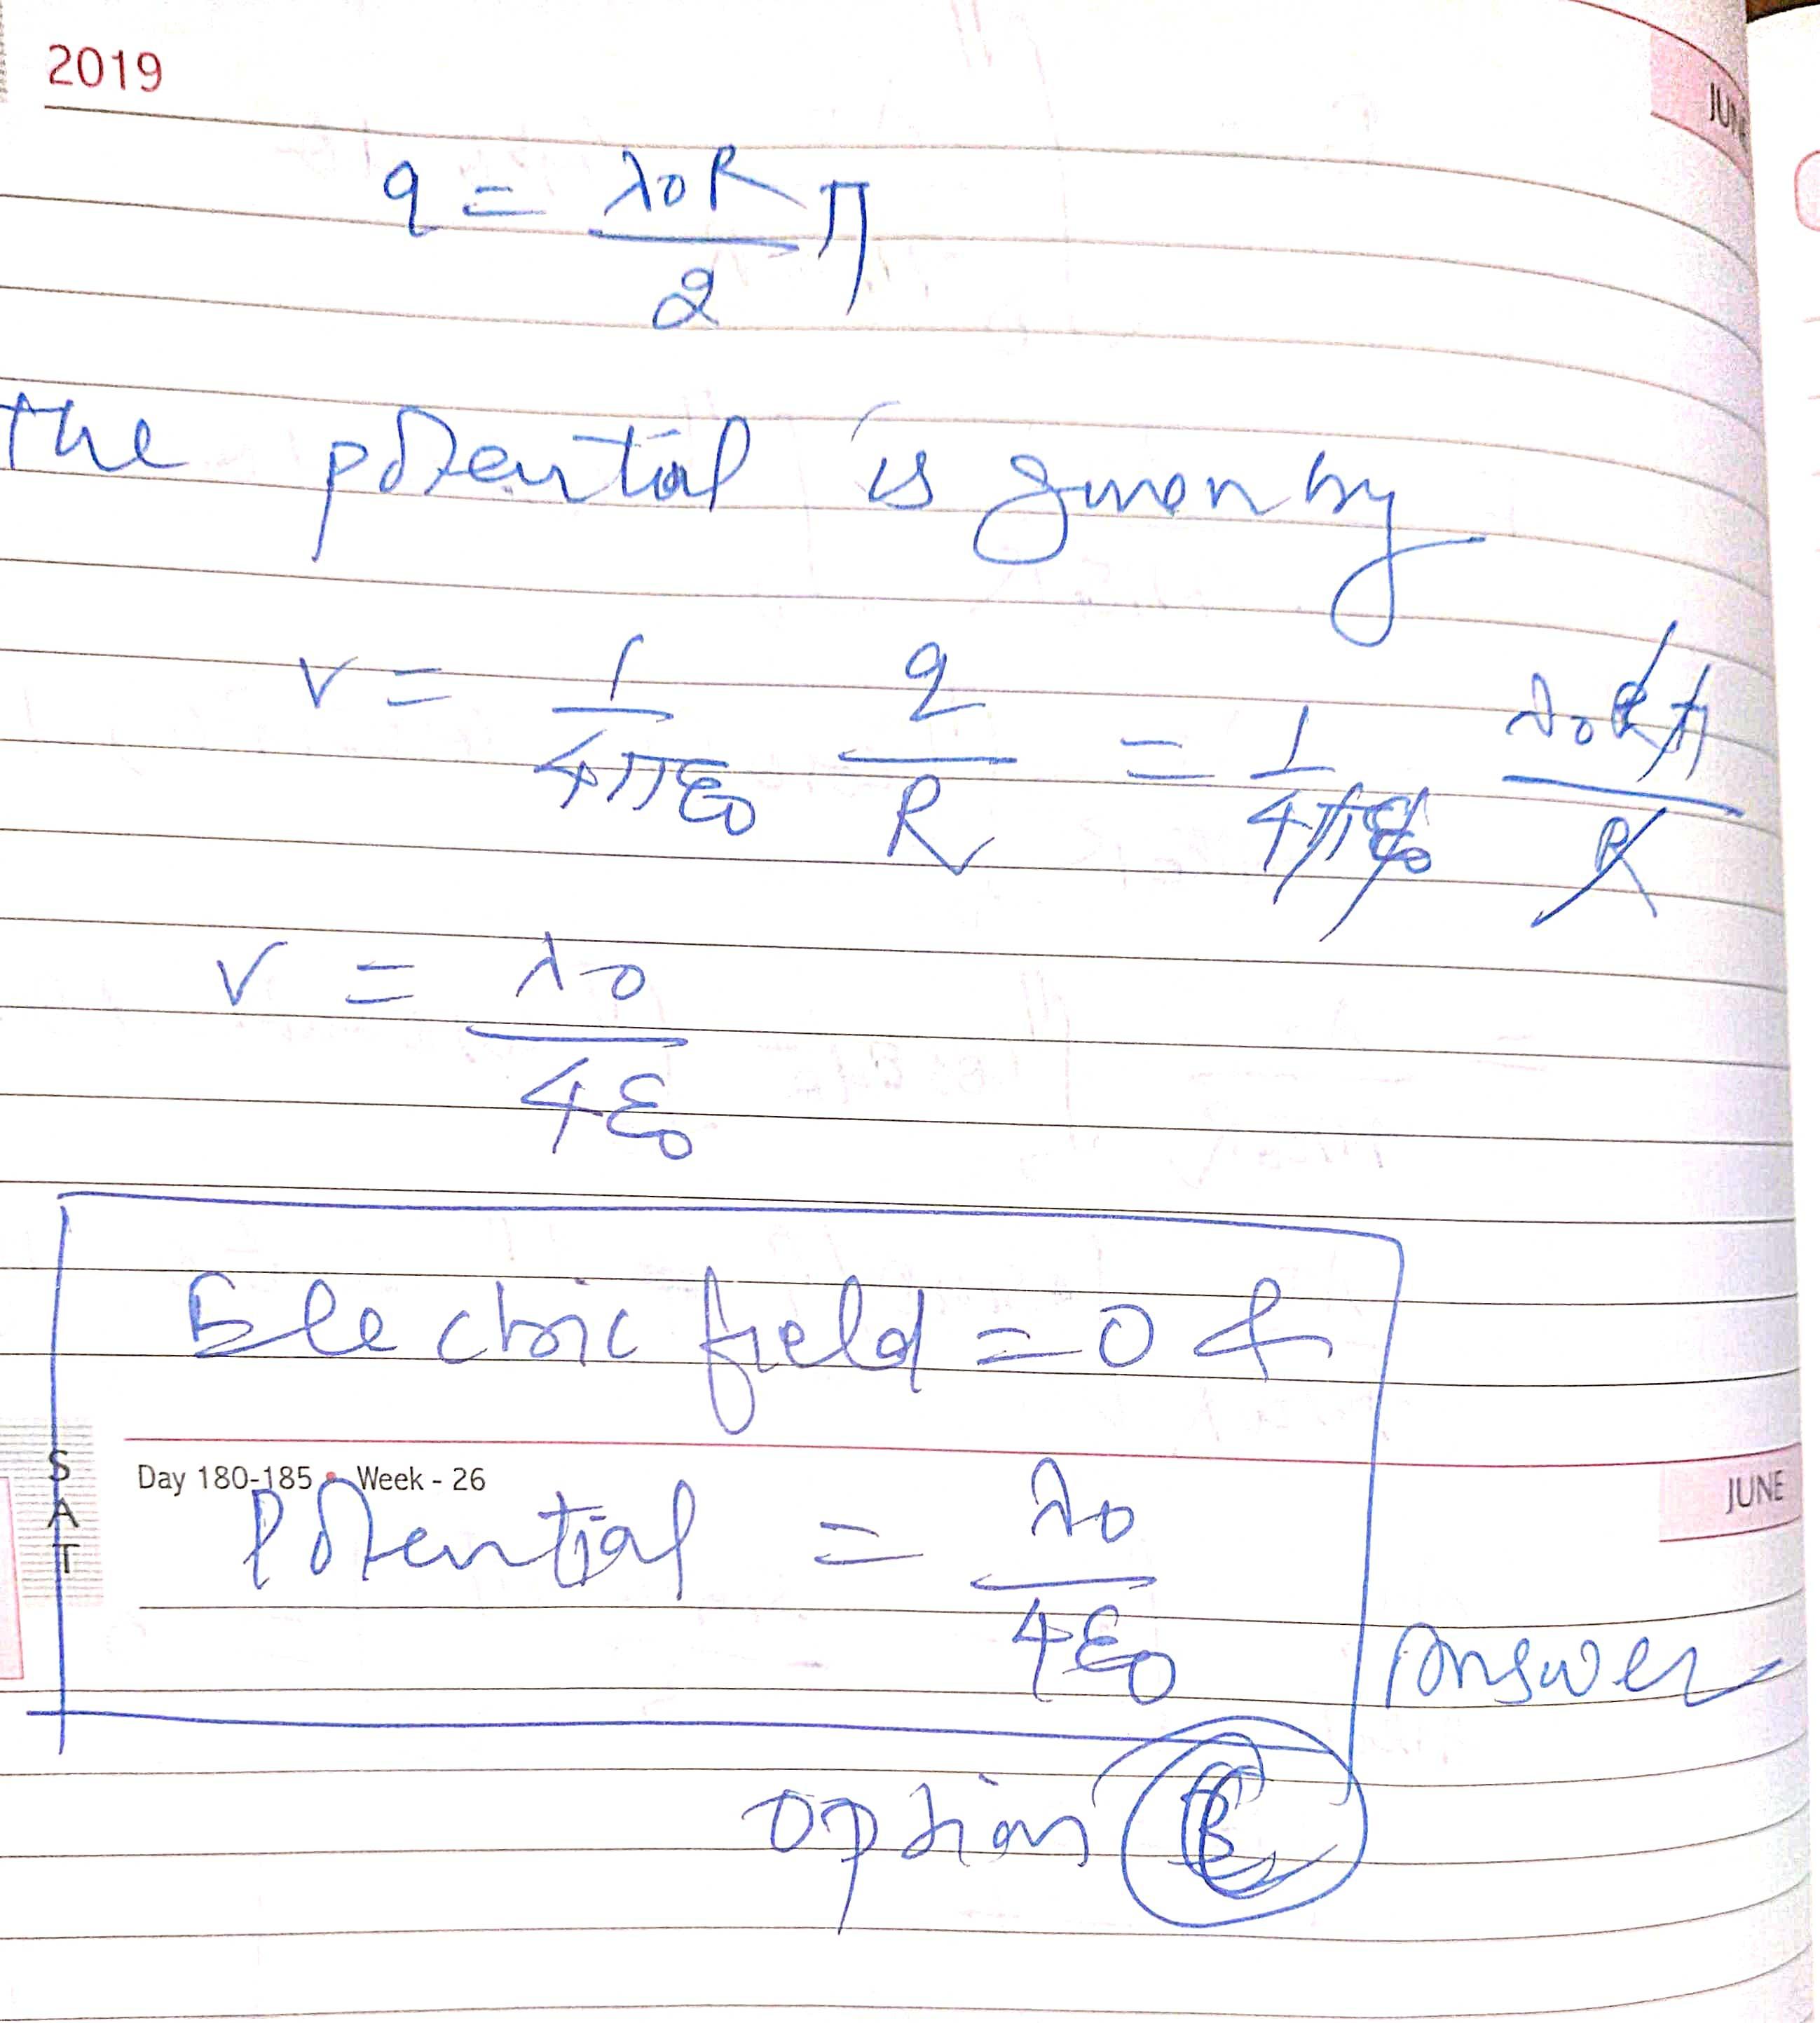 2019
JUNE
q = λ0R/2 π
the potential is given by
V = 1/4πε0 q/R = 1/4πε0 λ0Rπ/R
V = λ0/4ε0
Electric field = 0 &
SAT
Day 180-185 • Week - 26
JUNE
Potential = λ0/4ε0
Answer
option